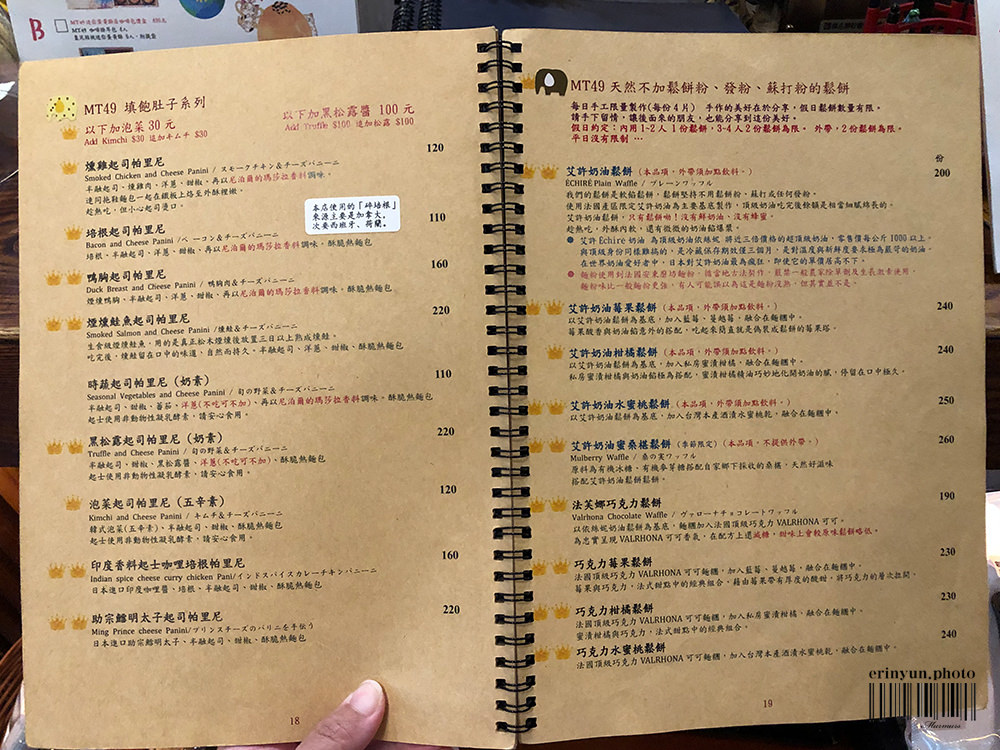 B
MT49 填飽肚子系列
以下加泡菜 30 元
Add Kimchi $30 追加キムチ $30
以下加黑松露醬 100 元
Add Truffle $100 追加松露 $100
燻雞起司帕里尼
120
Smoked Chicken and Cheese Panini / スモークチキン&チーズパニーニ
半融起司、燻雞肉、洋蔥、甜椒、再以尼泊爾的瑪莎拉香料調味。
連同拖鞋麵包一起在鐵板上烙至外酥裡嫩。
趁熱吃，但小心起司燙口。
本店使用的「碎培根」
來源主要是加拿大。
次要西班牙、荷蘭。
培根起司帕里尼
110
Bacon and Cheese Panini / ベーコン&チーズパニーニ
培根、半融起司、洋蔥、甜椒、再以尼泊爾的瑪莎拉香料調味，酥脆熱麵包
鴨胸起司帕里尼
160
Duck Breast and Cheese Panini / 鴨胸肉&チーズパニーニ
煙燻鴨胸、半融起司、洋蔥、甜椒、再以尼泊爾的瑪莎拉香料調味，酥脆熱麵包
煙燻鮭魚起司帕里尼
220
Smoked Salmon and Cheese Panini / 燻鮭&チーズパニーニ
生食級煙燻鮭魚，用的是真正松木煙燻後放置三日以上熟成燻鮭。
吃完後，燻鮭留在口中的味道，自然而持久。半融起司、洋蔥、甜椒、酥脆熱麵包
時蔬起司帕里尼（奶素）
110
Seasonal Vegetables and Cheese Panini / 旬の野菜&チーズパニーニ
半融起司、甜椒、蕃茄、洋蔥(不吃可不加)、再以尼泊爾的瑪莎拉香料調味，酥脆熱麵包
起士使用非動物性凝乳酵素，請安心食用。
黑松露起司帕里尼（奶素）
220
Truffle and Cheese Panini / 旬の野菜&チーズパニーニ
半融起司、甜椒、黑松露醬，洋蔥(不吃可不加)。酥脆熱麵包
起士使用非動物性凝乳酵素，請安心食用。
泡菜起司帕里尼（五辛素）
120
Kimchi and Cheese Panini / キムチ&チーズパニーニ
韓式泡菜(五辛素)、半融起司、甜椒、酥脆熱麵包
起士使用非動物性凝乳酵素，請安心食用。
印度香料起士咖哩培根帕里尼
160
Indian spice cheese curry chicken Pani/インドスパイスカレーチキンパニーニ
日本進口印度咖哩醬、培根、半融起司、甜椒、酥脆熱麵包
助宗鱈明太子起司帕里尼
220
Ming Prince cheese Panini/プリンスチーズのパリニを手伝う
日本進口助宗鱈明太子、半融起司、甜椒、酥脆熱麵包
18
MT49 天然不加鬆餅粉、發粉、蘇打粉的鬆餅
每日手工限量製作(每份 4 片) 手作的美好在於分享，假日鬆餅數量有限。
請手下留情，讓後面來的朋友，也能分享到這份美好。
假日約定：內用 1-2 人 1 份鬆餅，3-4 人 2 份鬆餅為限。 外帶，2 份鬆餅為限。
平日沒有限制 …
份
艾許奶油鬆餅（本品項，外帶須加點飲料。）
200
ÉCHIRÉ Plain Waffle / プレーンワッフル
我們的鬆餅是軟餡鬆餅，鬆餅堅持不用鬆餅粉、蘇打或任何發粉。
使用法國產區限定艾許奶油為主要基底製作，頂級奶油吃完後餘韻是相當細膩綿長的。
艾許奶油鬆餅，只有鬆餅喲！沒有鮮奶油、沒有蜂蜜。
趁熱吃，外酥內軟，還有微微的奶油餡爆漿。
● 艾許 Échiré 奶油 為頂級奶油依絲妮 將近三倍價格的超頂級奶油，零售價每公斤 1000 以上。
與頂級身份同樣難搞的，是冷藏保存期效僅三個月，是對溫度與新鮮度要求極為嚴苛的奶油。
在世界奶油愛好者中，日本對艾許奶油最為瘋狂，即使它的單價居高不下。
艾許奶油莓果鬆餅（本品項，外帶須加點飲料。）
240
以艾許奶油鬆餅為基底，加入藍莓、蔓越莓，融合在麵糰中。
莓果酸香與奶油餡意外的搭配，吃起來簡直就是偽裝成鬆餅的莓果塔。
艾許奶油柑橘鬆餅（本品項，外帶須加點飲料。）
240
以艾許奶油鬆餅為基底，加入私房蜜漬柑橘，融合在麵糰中。
私房蜜漬柑橘與奶油餡極為搭配，蜜漬柑橘精油巧妙地化開奶油的膩，停留在口中極久。
艾許奶油水蜜桃鬆餅（本品項，外帶須加點飲料。）
250
以艾許奶油鬆餅為基底，加入台灣本產酒漬水蜜桃乾，融合在麵糰中。
艾許奶油蜜桑椹鬆餅（季節限定）（本品項，不提供外帶。）
260
Mulberry Waffle / 桑の実ワッフル
原料為有機冰糖，有機麥芽糖搭配自家鄉下採收的桑椹，天然好滋味
搭配艾許奶油鬆餅鬆餅。
法芙娜巧克力鬆餅
190
Valrhona Chocolate Waffle / ヴァローナチョコレートワッフル
以依絲妮奶油鬆餅為基底，麵糰加入法國頂級巧克力 VALRHONA 可可。
為忠實呈現 VALRHONA 可可香氣，在配方上還減糖，甜味上會較原味鬆餅略低。
巧克力莓果鬆餅
230
法國頂級巧克力 VALRHONA 可可麵糰，加入藍莓、蔓越莓，融合在麵糰中。
莓果與巧克力，法式甜點中的經典組合，藉由莓果帶有厚度的酸甜，將巧克力的層次拉開。
巧克力柑橘鬆餅
230
法國頂級巧克力 VALRHONA 可可麵糰，加入私房蜜漬柑橘，融合在麵糰中。
蜜漬柑橘與巧克力，法式甜點中的經典組合。
巧克力水蜜桃鬆餅
240
法國頂級巧克力 VALRHONA 可可麵糰，加入台灣本產酒漬水蜜桃乾，融合在麵糰中。
19
erinyun.photo